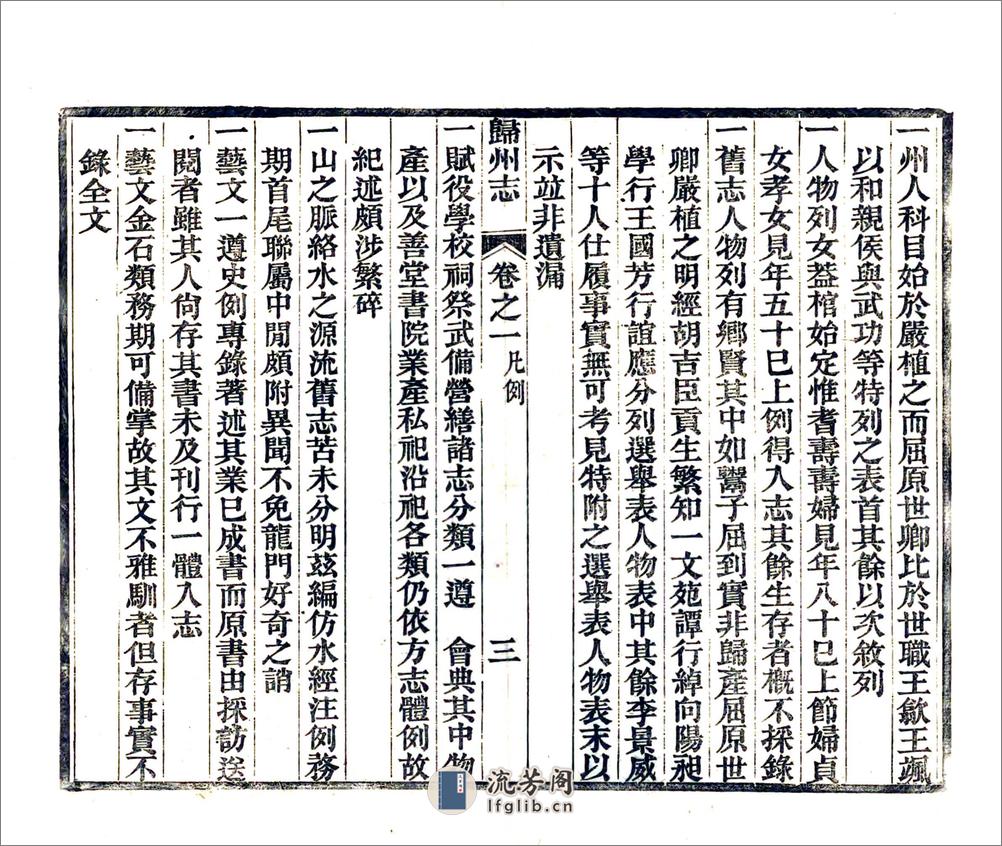 一州人科目始於嚴植之而屈原世卿比於世職王歙王颯
以和親侯與武功等特列之表首其餘以次敘列
一人物列女葢棺始定惟耆壽壽婦見年八十巳上節婦貞
女孝女見年五十巳上例得入志其餘生存者概不採錄
一舊志人物列有鄉賢其中如鬻子屈到實非歸產屈原世
卿嚴植之明經胡吉臣貢生繁知一文苑譚行綽向陽昶
學行王國芳行誼應分列選舉表人物表中其餘李景威
等十人仕履事實無可考見特附之選舉表人物表末以
示並非遺漏
歸州志
卷之一
凡例
三
一賦役學校祠祭武備營繕諸志分類一遵 會典其中物
產以及善堂書院業產私祀沿祀各類仍依方志體例故
紀述頗涉繁碎
一山之脈絡水之源流舊志苦未分明茲編仿水經注例務
期首尾聯屬中閒頗附異聞不免龍門好奇之誚
一藝文一遵史例專錄著述其業已成書而原書由採訪送
閱者雖其人尙存其書未及刊行一體入志
一藝文金石類務期可備掌故其文不雅馴者但存事實不
錄全文
流芳阁
lfglib.cn